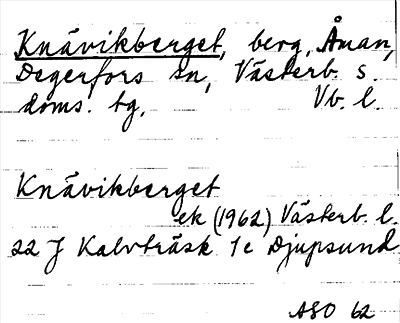 Knävikberget, berg, Åman,
Degerfors sn, Västerb. s.
doms. tg. Vb. l.
Knävikberget
ek (1962) Västerb. l.
22 J Kalvträsk 1e Djupsund
ASO 62